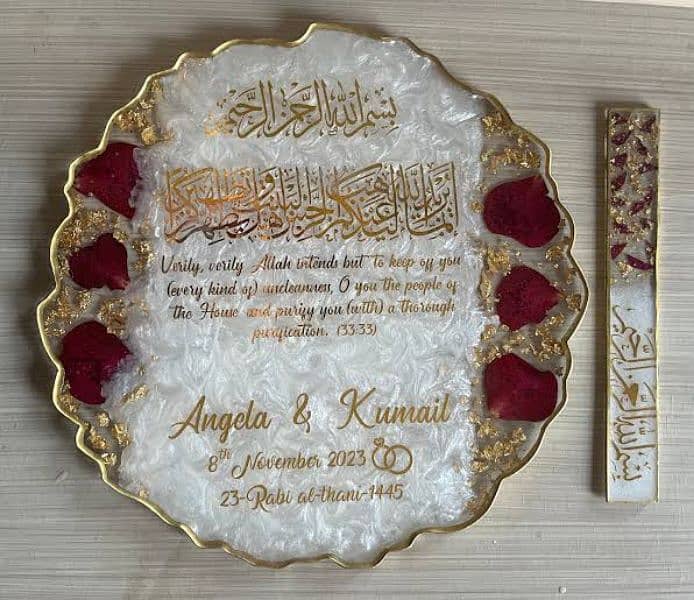 بسم الله الرحمن الرحيم
إنما يريد الله ليذهب عنكم الرجس أهل البيت ويطهركم تطهيرا
Verily, verily Allah intends but to keep off you
(every kind of) uncleanness, O you the people of
the House and purify you (with) a thorough
purification. (33:33)
Angela & Kumail
8th November 2023
23-Rabi al-thani-1445
بسم الله الرحمن الرحيم